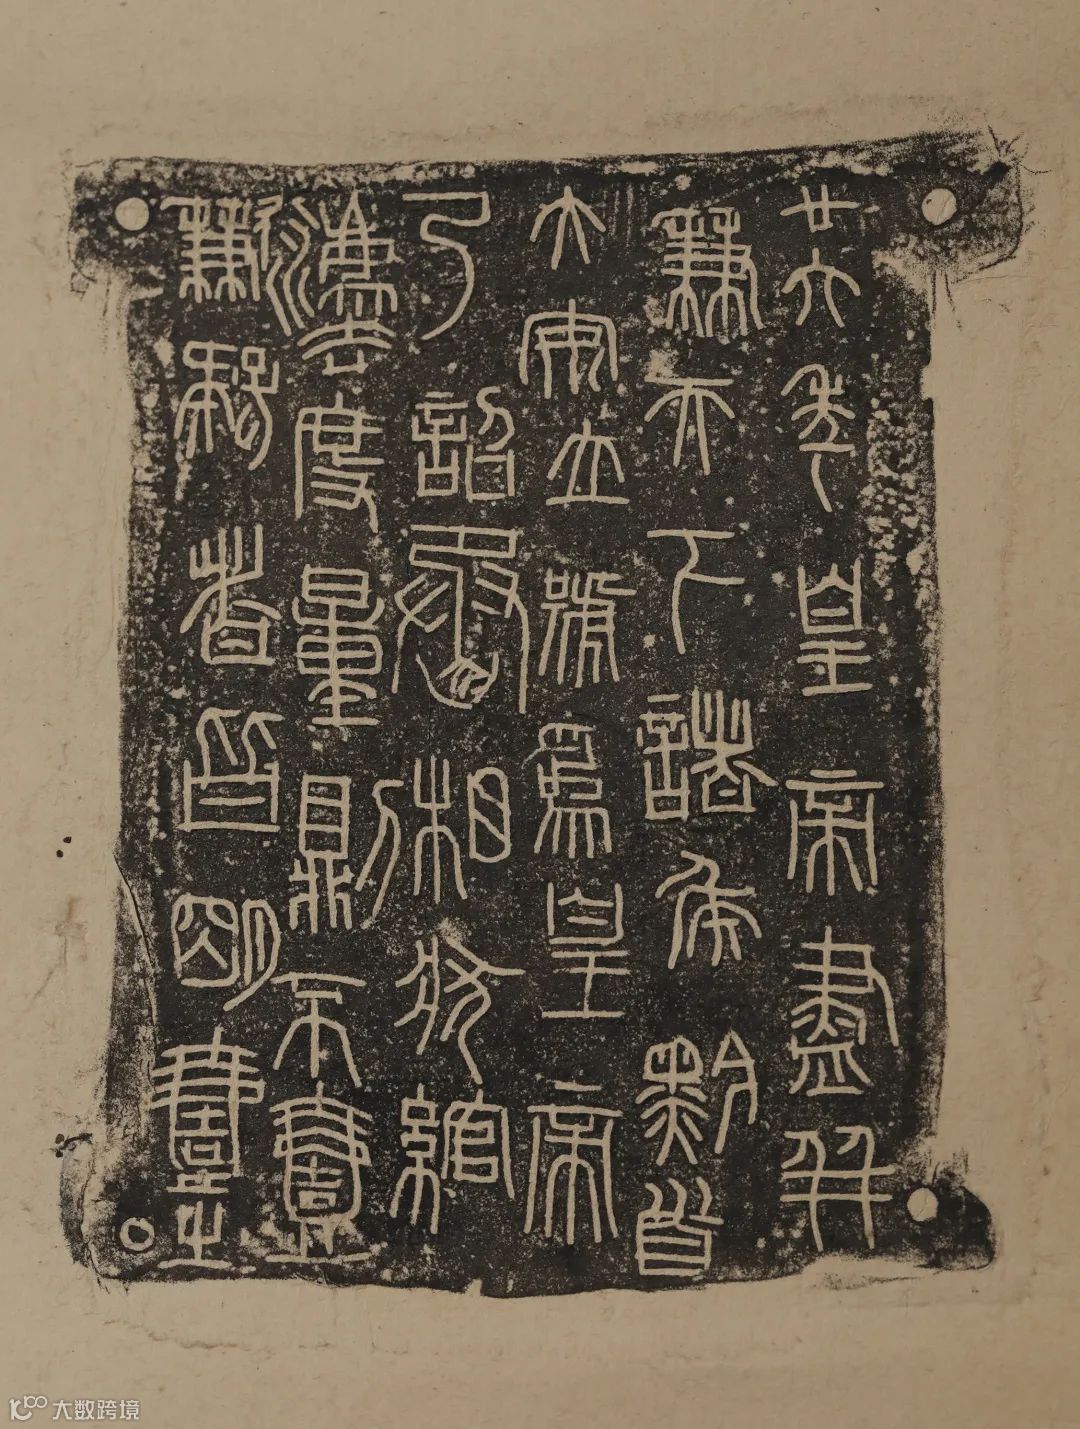 廿六年皇帝盡并
兼天下諸侯黔首
大安立號為皇帝
乃詔丞相狀綰
灋度量則不壹
歉疑者皆明壹之
大数跨境